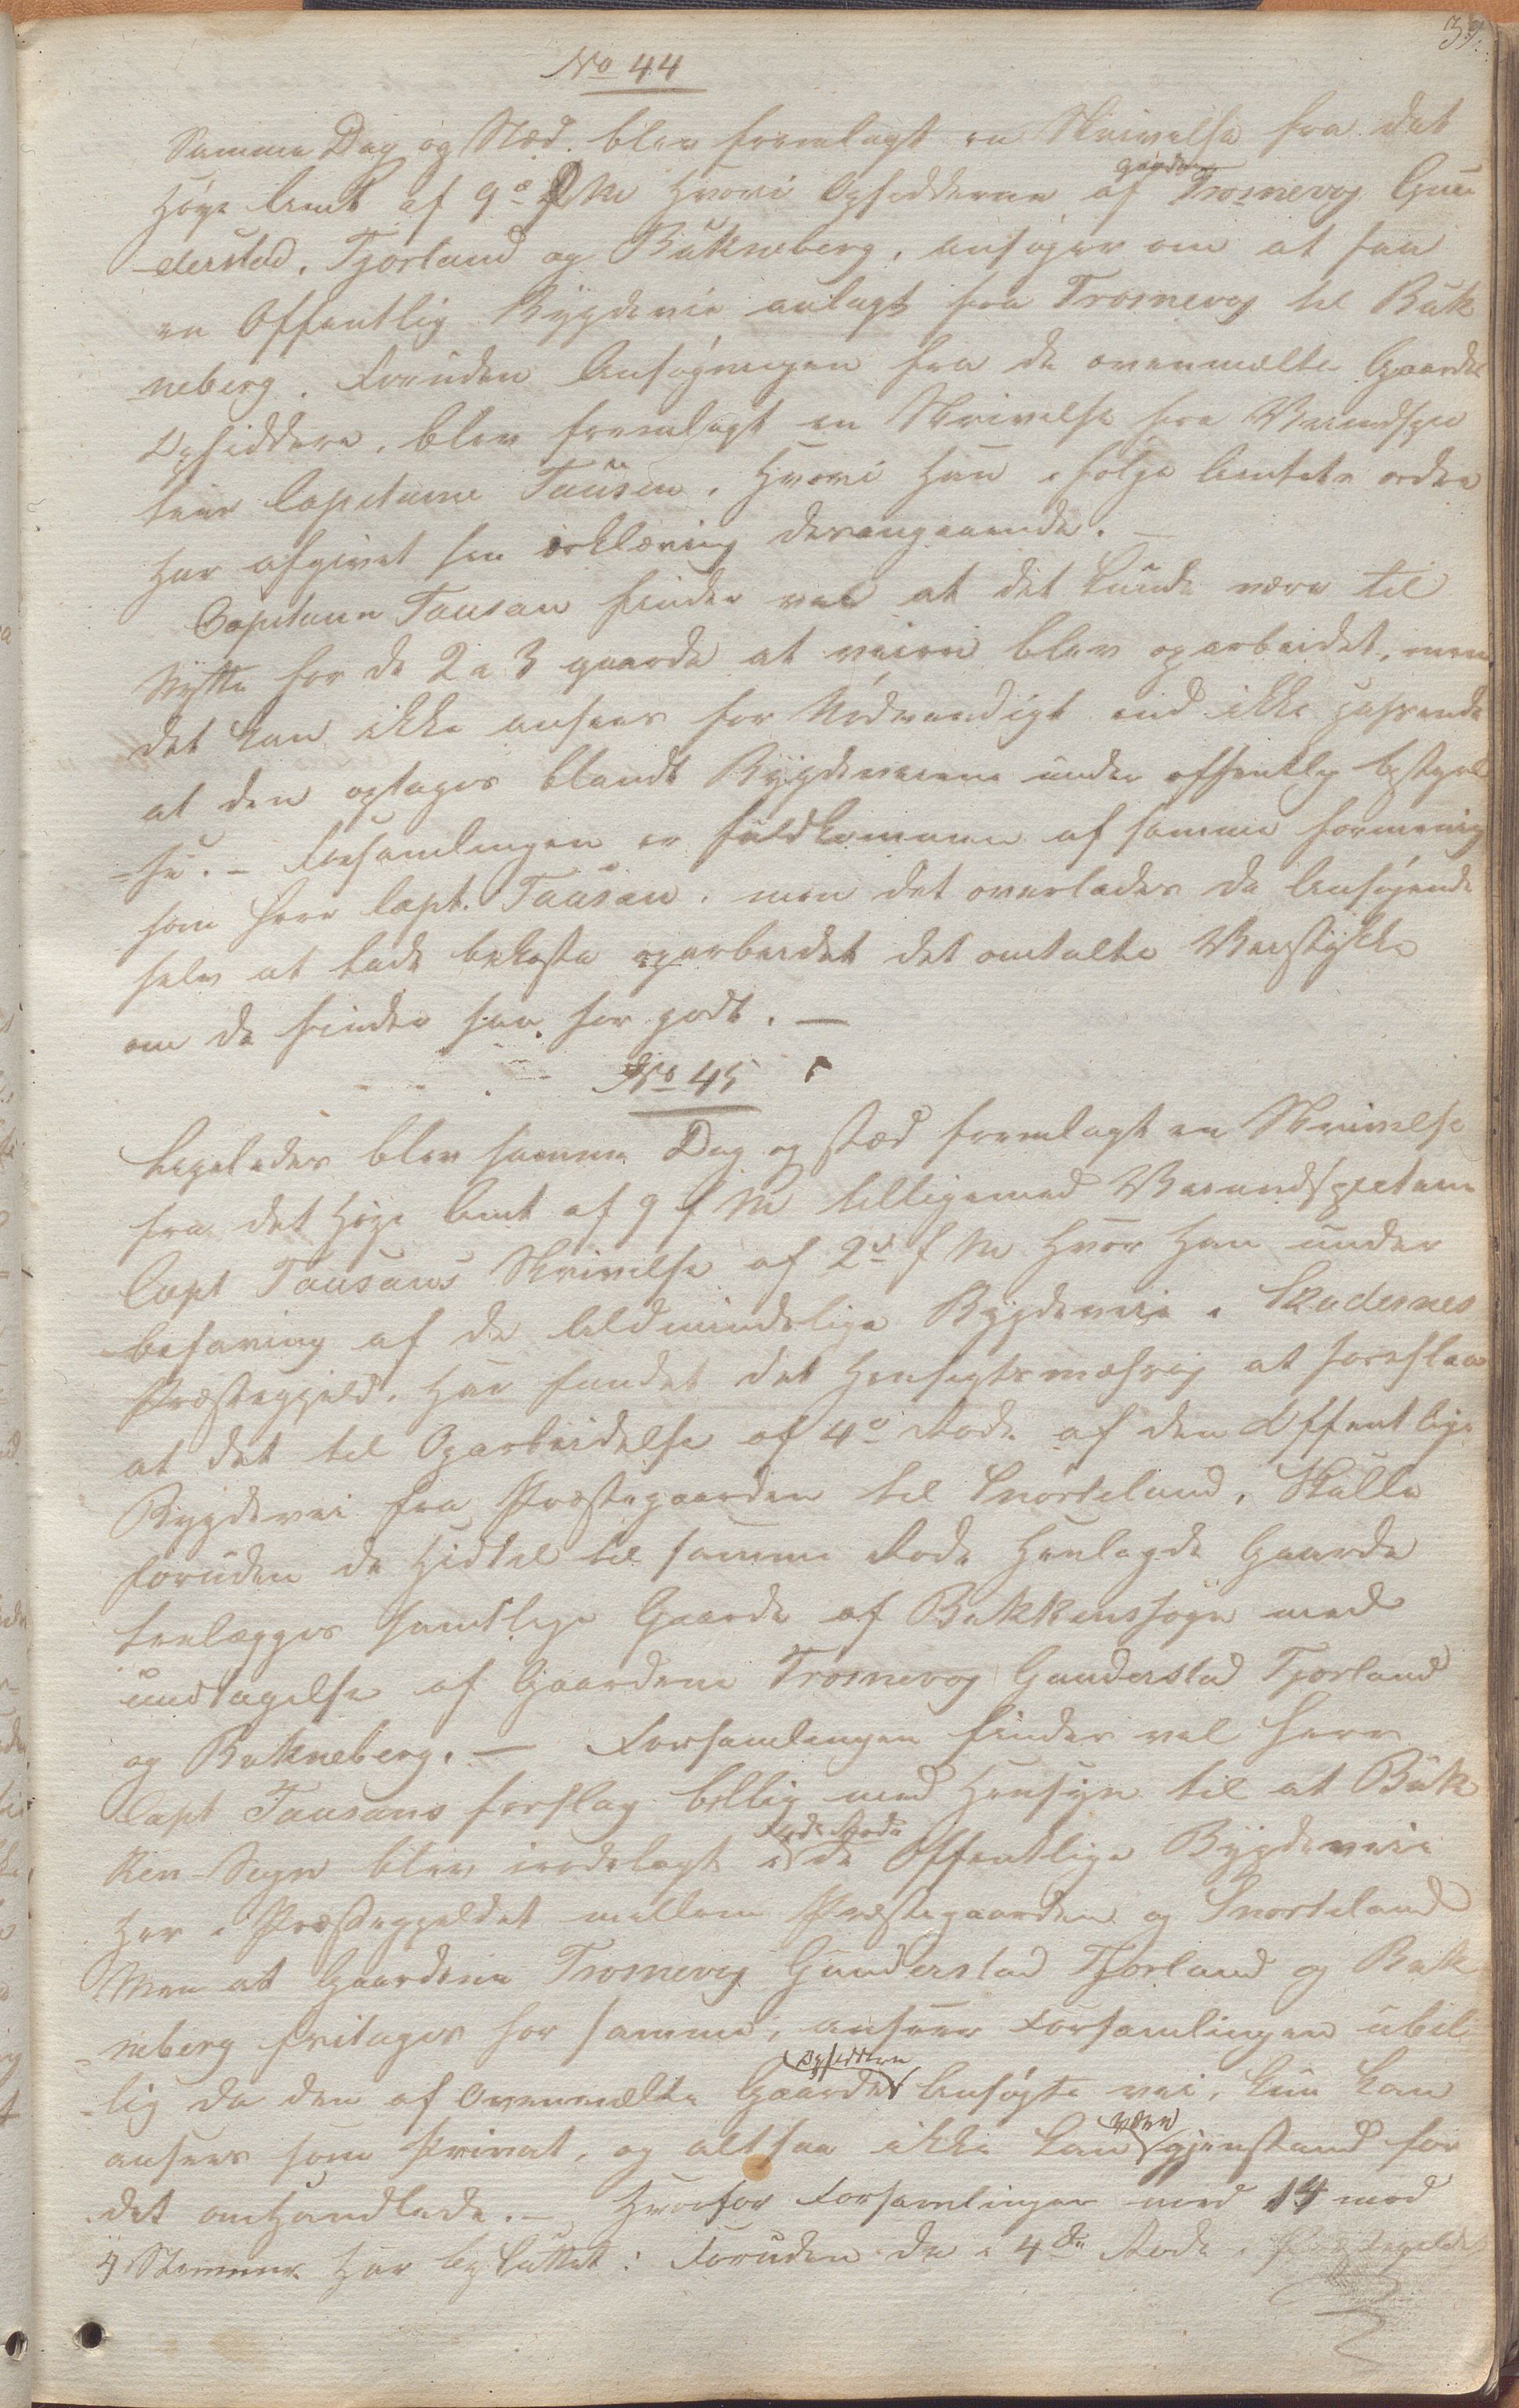 39.
No 44
Samme Dag og Stæd. blev fremlagt en Skrivelse fra det
Høye Amt af 9de f M hvori Opsidderne af gaardene Trosnevog Gun
-derstad, Tjorland og Bükneberg, ansøger om at faa
en Offentlig Bygdevei anlagt fra Trosnevog til Buk
-neberg. Foruden Ansøgningen fra de ovenmelte Gaardes
Opsiddere, blev fremlagt en Skrivelse fra Veiindspec
teur Capitaine Tausen, hvori han i følge Amtets ordre
har afgivet sin erklæring derangaaende. —
Capitain Tausan finder vel at det kunde være til
Nytte for de 2 a 3 gaarde at veien blev oparbeidet, men
det kan ikke ansees for Nødvendigt end ikke passende
at den optages blandt Bygdeveiene under offentlig bestyrel
-se. — Forsamlingen er fuldkommen af samme formening
som Herr Capt. Tausan. men det overlades de Ansøgende
selv at lade bekoste oparbeidet det omtalte Veistykke
om de finder saa for godt. —
No 45
Ligeledes blev samme Dag og stæd fremlagt en Skrivelse
fra det høye Amt af 9 f M tilligemed Veiindspecteur
Capt Tausans Skrivelse af 2den f M hvor han under
befaring af de Aldmindelige Bygdeveie i Skudesnes
Præstegjeld, har fundet det hensigtsmæssig at foreslaa
at det til Oparbeidelse af 4de Rode af den Offentlige
Bygdevei fra Præstegaarden til Snørteland, skulle
foruden de hidtil til samme Rode henlagde Gaarde
henlægges samtlige Gaarde af Bukkensogn med
undtagelse af Gaardene Trosnevog Gunderstad Tjorland
og Bukneberg. — Forsamlingen finder vel Herr
Capt Tausans forslag billig med hensyn til at Buk
ken-Sogn blev inddelagt i 4de Rode de Offentlige Bygdeveie
her i Præstegjeldet mellem Præstegaarden og Snorteland
Men at Gaardene Trosnevog Gunderstad Tjorland og Buk
-neberg fritages for samme, anseer Forsamlingen ubil
-lig da den af Ovenmelte Gaardes Opsiddere Ansøgte vei, kun kan
ansees som Privat, og altsaa ikke kan være gjenstand for
det omhandlede. — Hvorfor Forsamlingen med 14 mod
4 Stemmer har besluttet: Foruden de i 4de Rode i